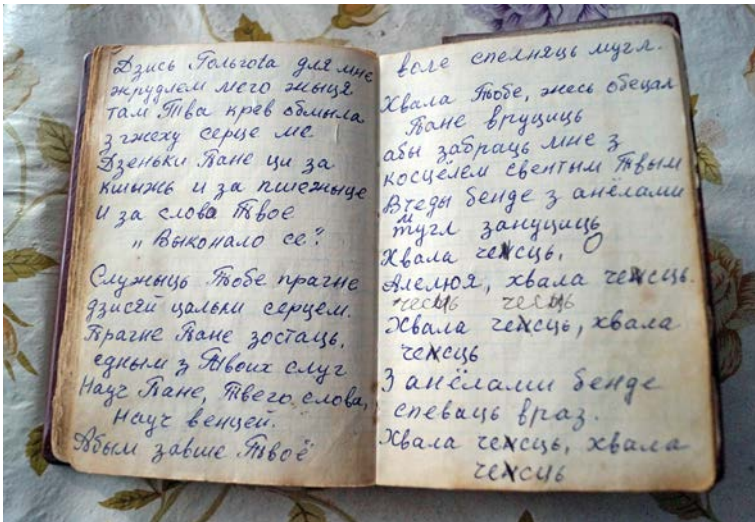 Дзись Гольгоta для мне
жрудлем мего жыця
там Тва крев обмыла
з гжеху серце ме
Дзеньки Пане ци за
кшыжь и за пшежыце
И за слова Твое
„Выконало се“.
Служыць Тобе прагне
дзисяй цалым серцем.
Прагне Пане зостаць,
едным з Твоих слуг
Науч Пане, Твего слова,
Науч венцей.
Абым завше Твоё
воле спелняць мугл.
Хвала Тобе, жесь обецал
Пане вруциць
абы забраць мне з
косцёлем свентым Твым
Вчеды бенде з анелами
мугл зануциць
Хвала чексць, О
Алелюя, хвала чексць.
чесць чесць
Хвала чексць, хвала
чексць
З анёлами бенде
спеваць враз.
Хвала чексць, хвала
чексць